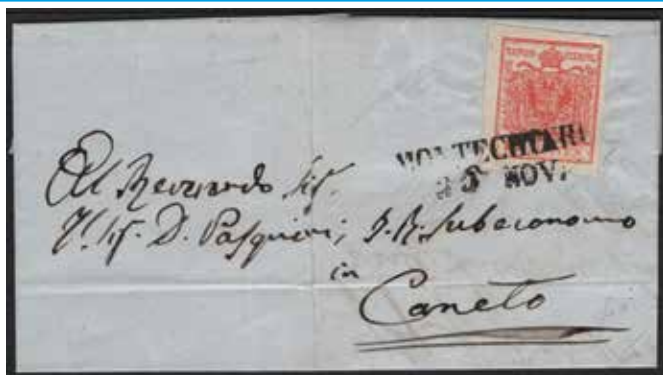 MONTECHIARI
5 NOV.
Al Reverendo Sig.
Sig. D. Pasquini; I. R. Subeconomo
in
Caneto